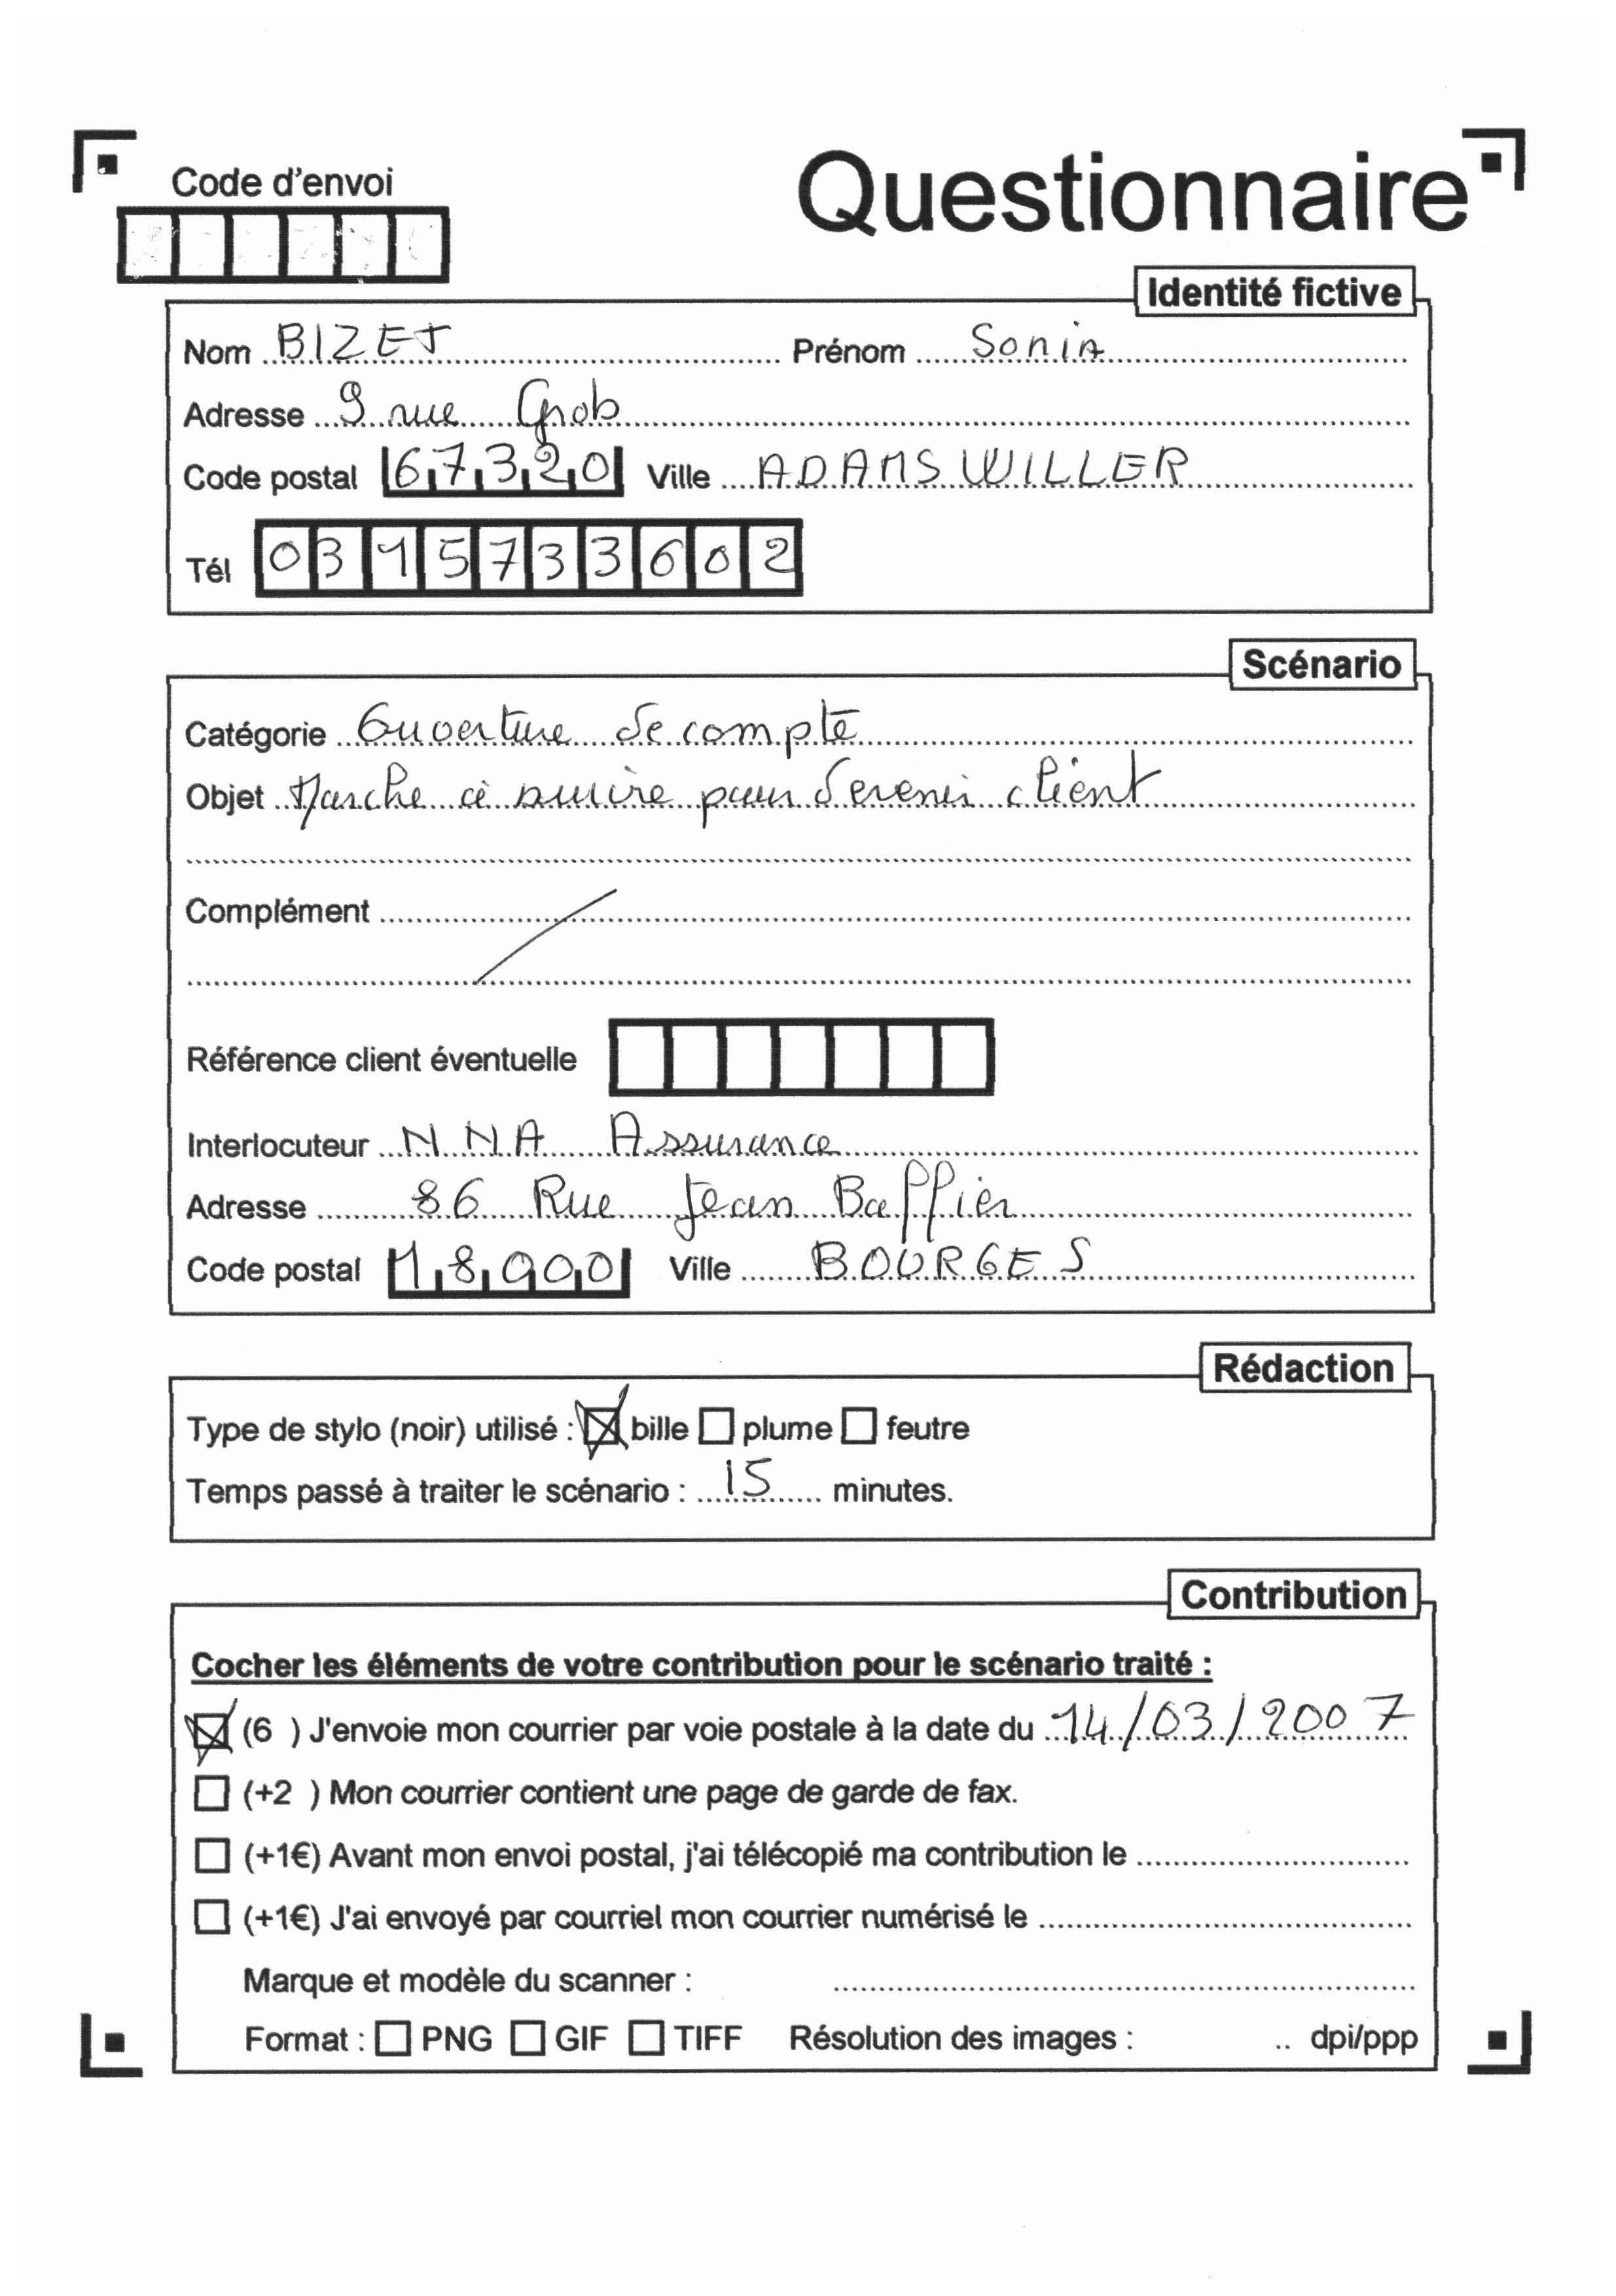 Code d'envoi
Questionnaire
Identité fictive
Nom BIZET Prénom Sonia
Adresse 9 rue Grob
Code postal 67320 Ville ADAMSWILLER
Tél 0315733602
Scénario
Catégorie Ouverture de compte
Objet Marche à suivre pour devenir client
Complément
Référence client éventuelle
Interlocuteur NNA Assurance
Adresse 86 Rue Jean Baffier
Code postal 18000 Ville BOURGES
Rédaction
Type de stylo (noir) utilisé : bille plume feutre
Temps passé à traiter le scénario : 15 minutes.
Contribution
Cocher les éléments de votre contribution pour le scénario traité :
(6 ) J'envoie mon courrier par voie postale à la date du 14/03/2007
(+2 ) Mon courrier contient une page de garde de fax.
(+1€) Avant mon envoi postal, j'ai télécopié ma contribution le
(+1€) J'ai envoyé par courriel mon courrier numérisé le
Marque et modèle du scanner :
Format : PNG GIF TIFF Résolution des images : .. dpi/ppp